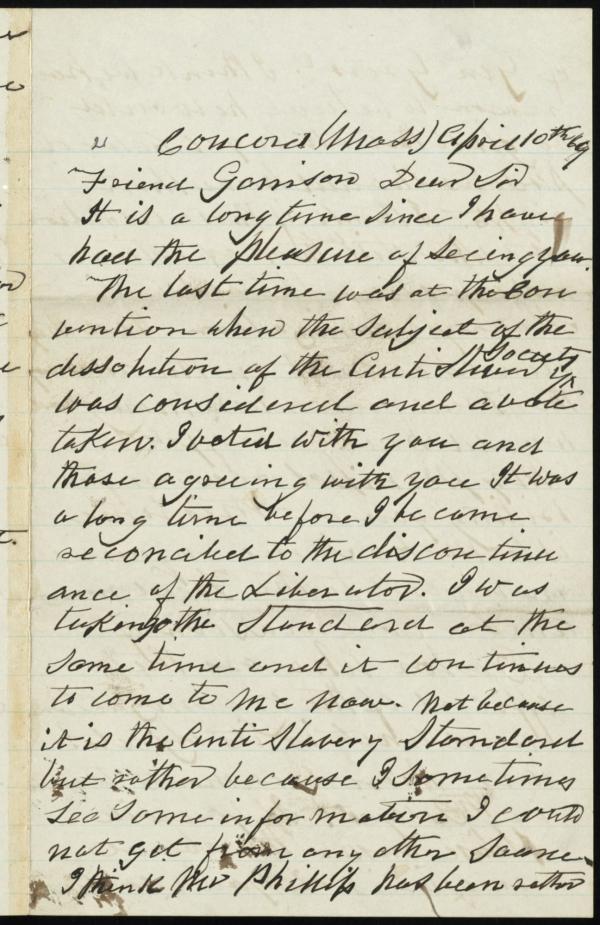 " Concord (Mass) April 10th 69
Friend Garrison Dear Sir
It is a long time since I have
had the pleasure of seeing you.
The last time was at the Con
vention when the subject of the
dissolution of the Anti Slavery Society
was considered and a vote
taken. I voted with you and
those agreeing with you It was
a long time before I became
reconciled to the discontinu
ance of the Liberator. I was
taking the Standard at the
same time and it continues
to come to me now. Not because
it is the Anti Slavery Standard
but rather because I sometimes
see some information I could
not get from any other source.
I think Mr Phillips has been rather